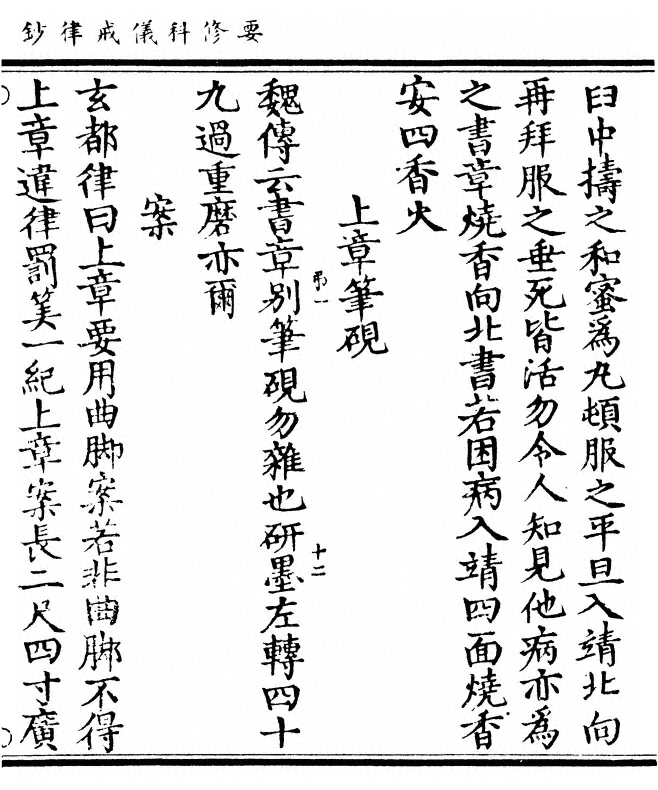 要修科儀戒律鈔
臼中擣之和蜜爲丸頓服之平旦入靖北向
再拜服之垂死皆活勿令人知見他病亦爲
之書章燒香向北書若困病入靖四面燒香
安四香火
上章筆硯
魏傳云書章别筆硯勿雜也研墨左轉四十
九過重磨亦爾
弔一
十二
案
玄都律曰上章要用曲脚案若非曲脚不得
上章違律罰筭一紀上章案長二尺四寸廣